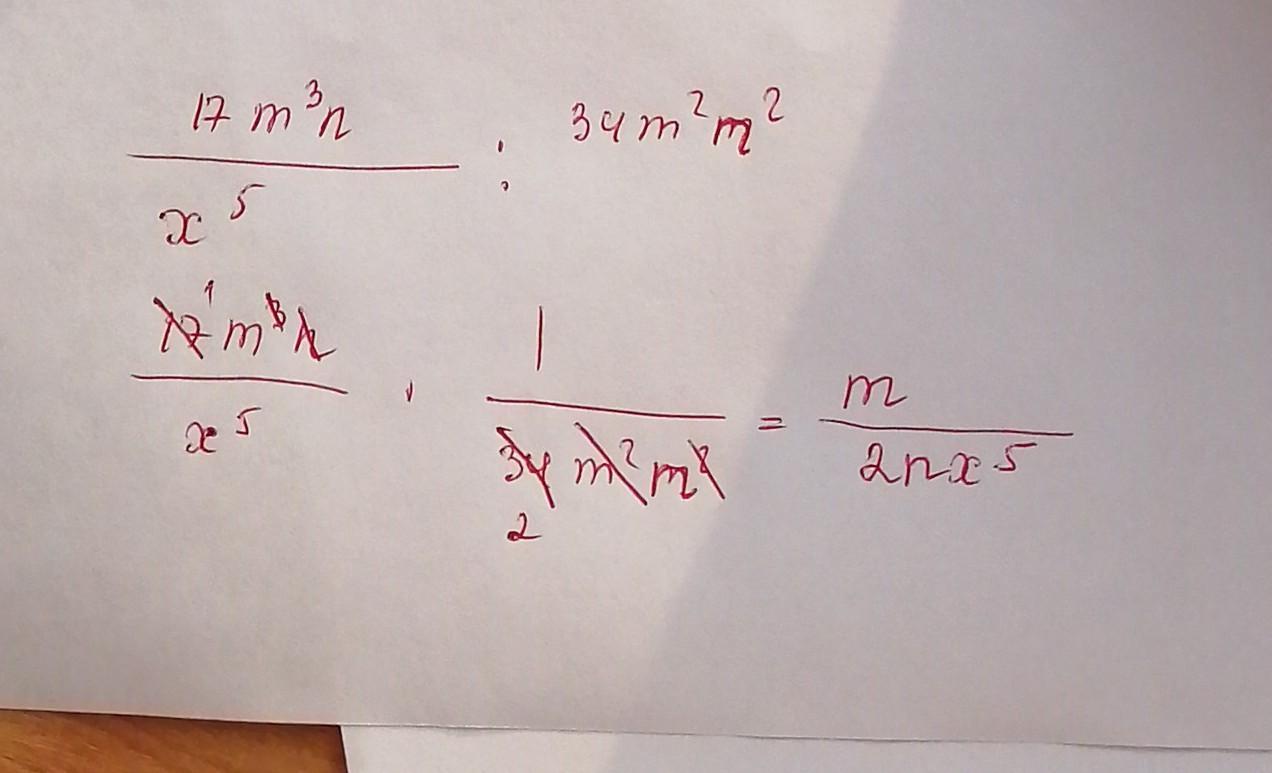 17 m³n / x⁵ : 34m²m²
17¹ m³n / x⁵ · 1 / 34 2 m²m² = m / 2nx⁵